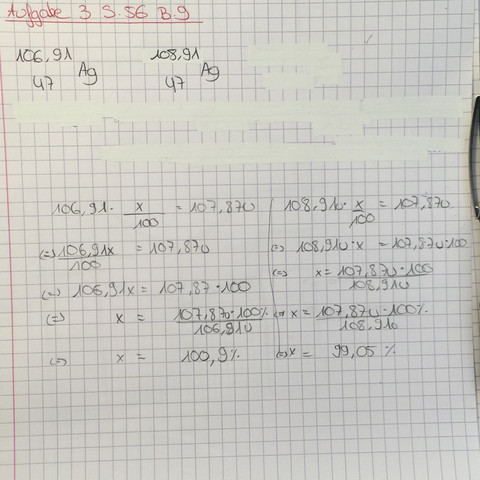 Aufgabe 3 S.56 B.9
106,91 108,91
47 Ag 47 Ag
106,91 · x/100 = 107,87u
(=) 106,91x/100 = 107,87u
(=) 106,91x = 107,87 · 100
(=) x = 107,87u · 100%/106,91u
(=) x = 100,9%
108,91u · x/100 = 107,87u
(=) 108,91u · x = 107,87u · 100
(=) x = 107,87u · 100/108,91u
(=) x = 107,87u · 100%/108,91u
(=) x = 99,05 %